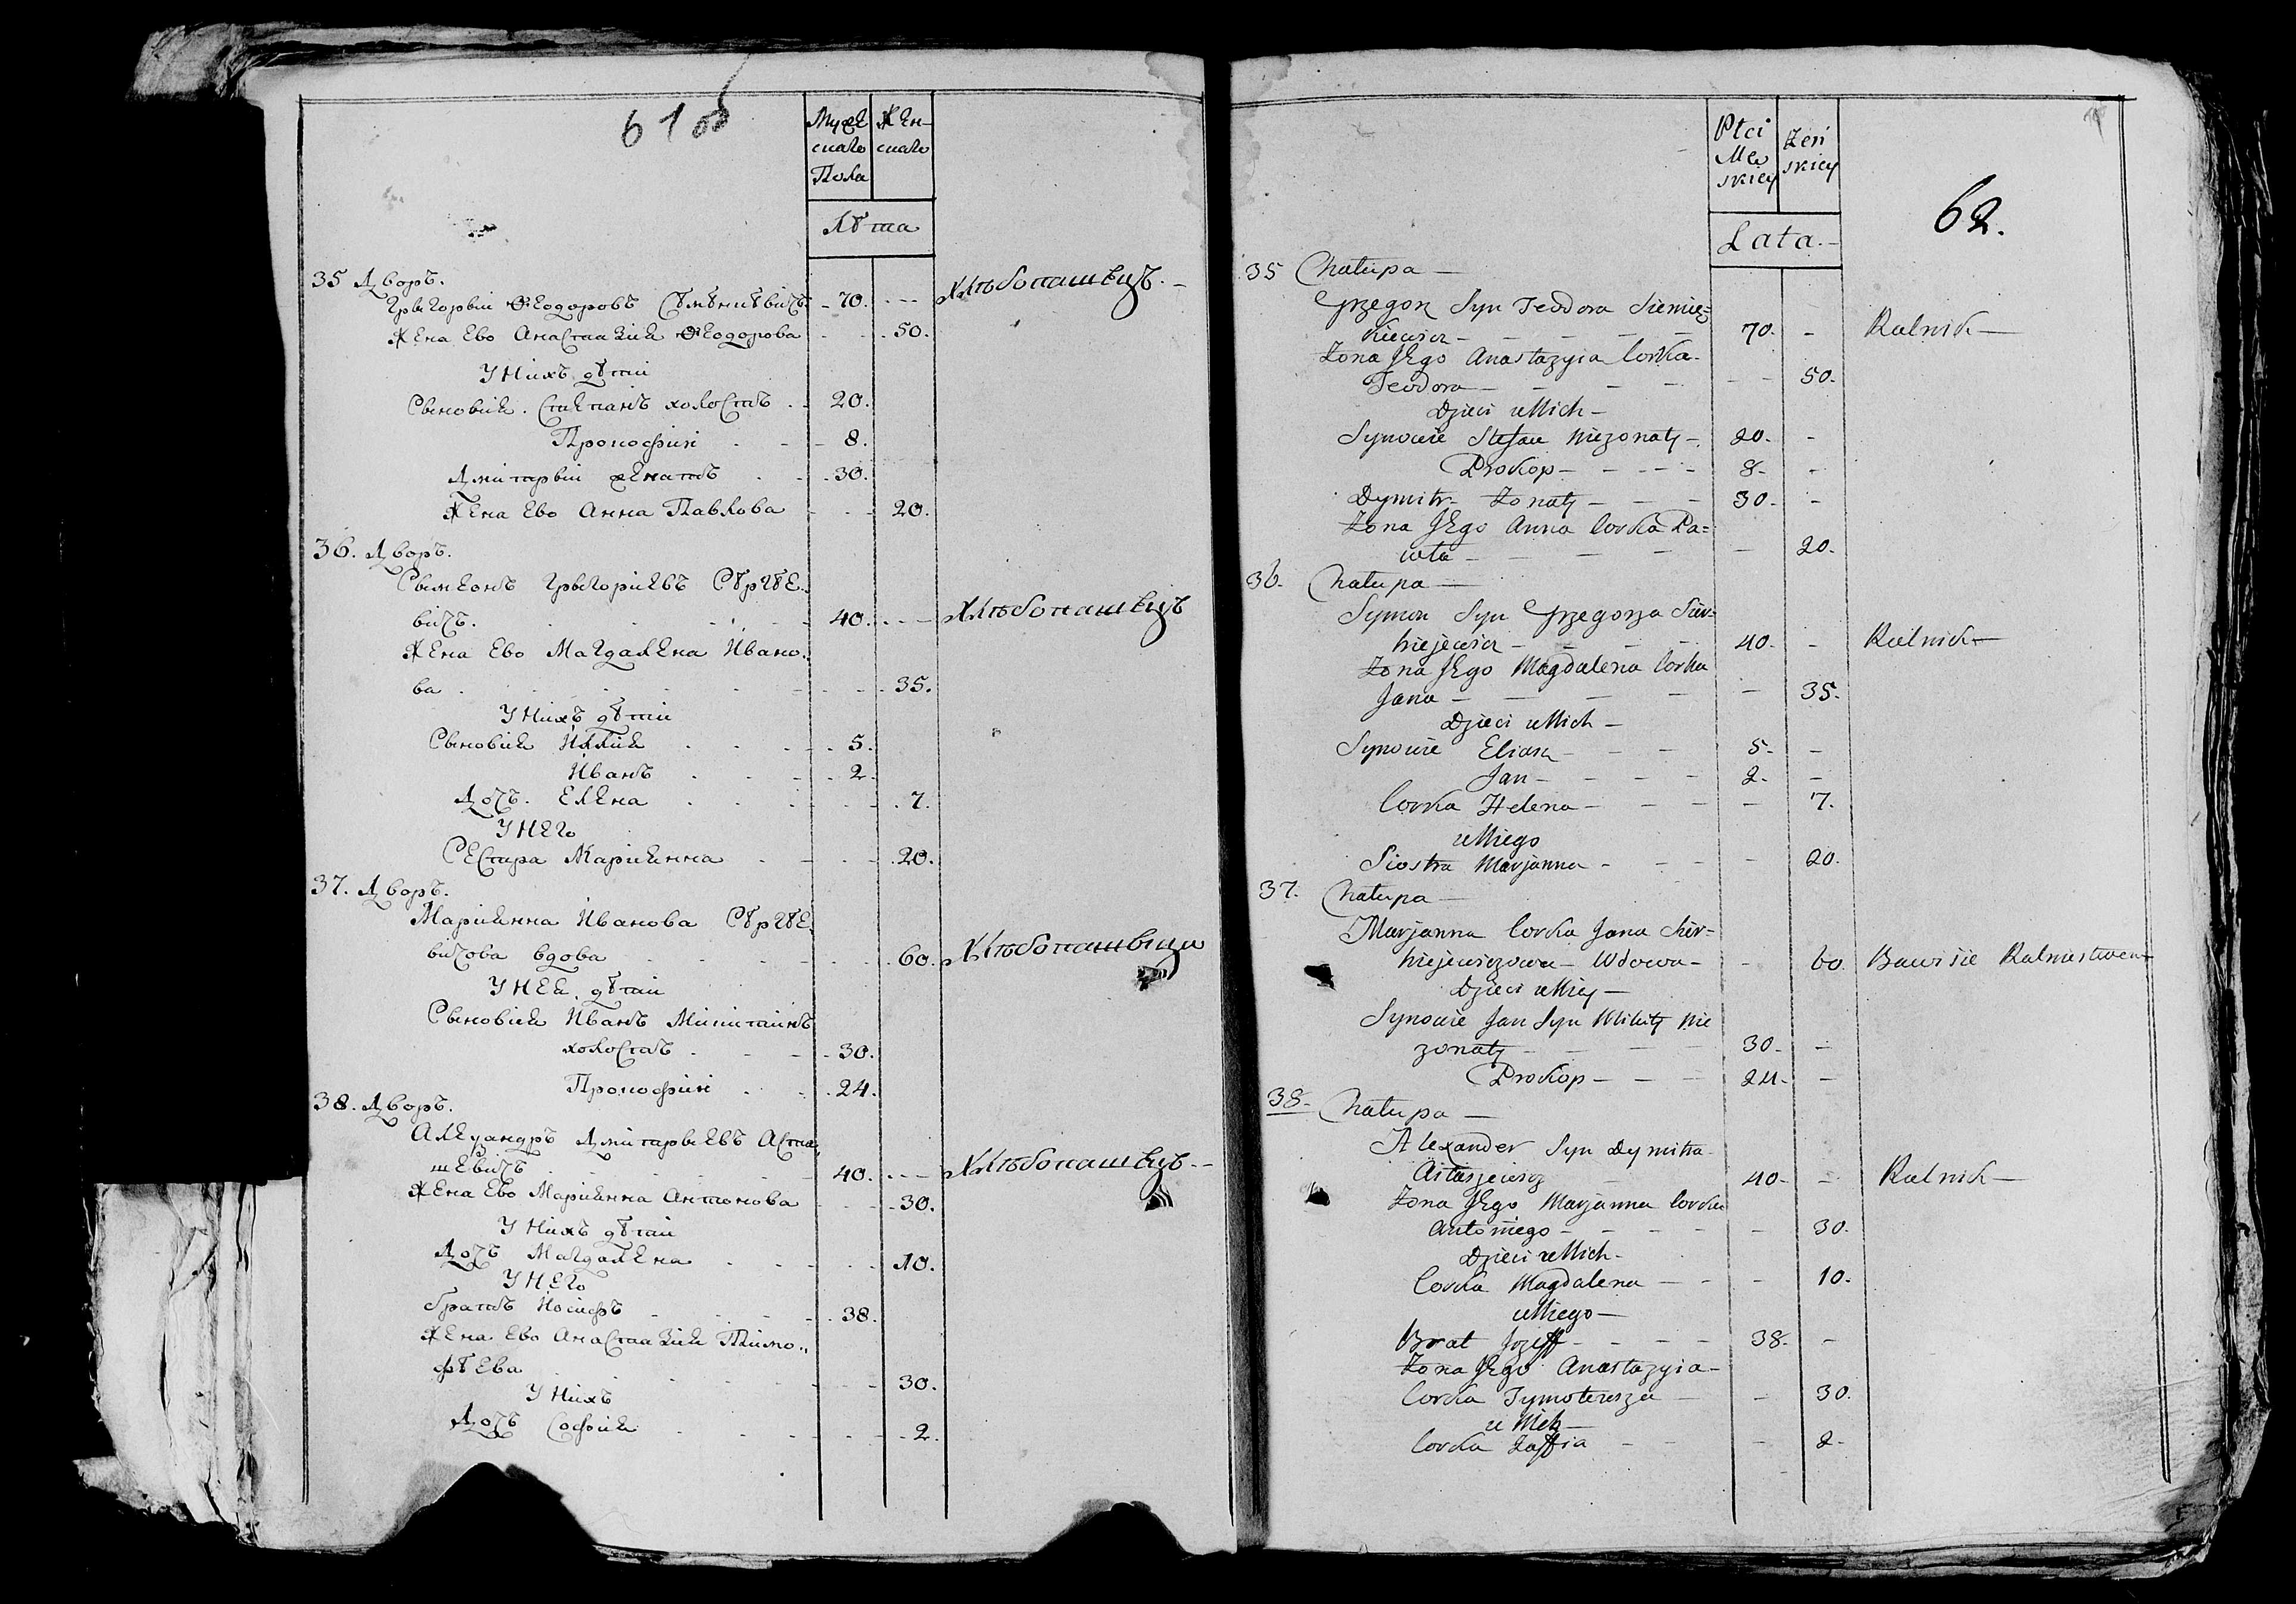 61 об
Мужескаго Пола
Женскаго
Лѣта
35 Дворъ.
Грыгорый Ѳеодоровъ - 70. - - - Хлѣбопашецъ. -
Жена Ево Анастазия Ѳеодорова - - 50.
У Нихъ дѣти
Сыновия. Стипанъ холостъ - 20.
Прокофий - 8.
Дмитрый женатъ - 30.
Жена Ево Анна Павлова - - 20.
36. Дворъ.
Сымеонъ Грыгориевъ Сѣргѣе-
вичъ. - 40. - - Хлѣбопашецъ
Жена Ево Магдалена Ивано-
ва - - 35.
У Нихъ дѣти
Сыновия Илия - 5.
Иванъ - 2.
Дочъ. Елена - 7.
У Него
Сестра Марианна - 20.
37. Дворъ.
Марианна Иванова Сѣргѣе-
вичова вдова - 60. Хлѣбопашеца
У Нея дѣти
Сыновия Иванъ Микитинъ
холостъ - 30.
Прокофий - 24.
38. Дворъ.
Александръ Дмитрыевъ Аста-
шевичъ - 40. - - Хлѣбопашецъ - -
Жена Ево Марианна Антонова - 30.
У Нихъ дѣти
Дочъ Магдалена - 10.
У Него
братъ Иосифъ - 38.
Жена Ево Анастазия Тимо-
фѣева - 30.
У Нихъ
Дочъ София - 2.
Płci Męskiey
Żeńskiey
Lata. -
62.
35 Chałupa —
Grzegorz Syn Teodora Siemie=
kiewicz - 70. - Rolnik —
Żona Jego Anastazyia Corka
Teodora — - 50.
Dzieci u Nich —
Synowie Stefan Nieżonaty - 20. -
Prokop - 8. -
Dymitr Żonaty - 30. -
Żona Jego Anna Corka Pa=
wła - 20.
36. Chałupa —
Symon Syn Grzegorza Sier=
hiejewicz - 40. - Rolnik —
Żona Jego Magdalena Corka
Jana — - 35.
Dzieci u Nich —
Synowie Eliasz - 5. -
Jan - 2. -
Corka Helena - 7.
u Niego
Siostra Marjanna - 20.
37. Chałupa —
Marjanna Corka Jana Sier=
hiejewiczowa — Wdowa - 60. Bawi sie Rolnictwem
Dzieci u Niey —
Synowie Jan Syn Mikity Nie
żonaty - 30. -
Prokop - 24. -
38. Chałupa —
Alexander Syn Dymitra
Astasjewicz 40. - Rolnik —
Żona Jego Marjanna Corka
Antoniego - 30.
Dzieci u Nich -
Corka Magdalena - 10.
u Niego —
Brat Jozeff - 38. -
Żona Jego Anastazyia -
Corka Tymoteusza - 30.
u Nich —
Corka Zoffia - 2.